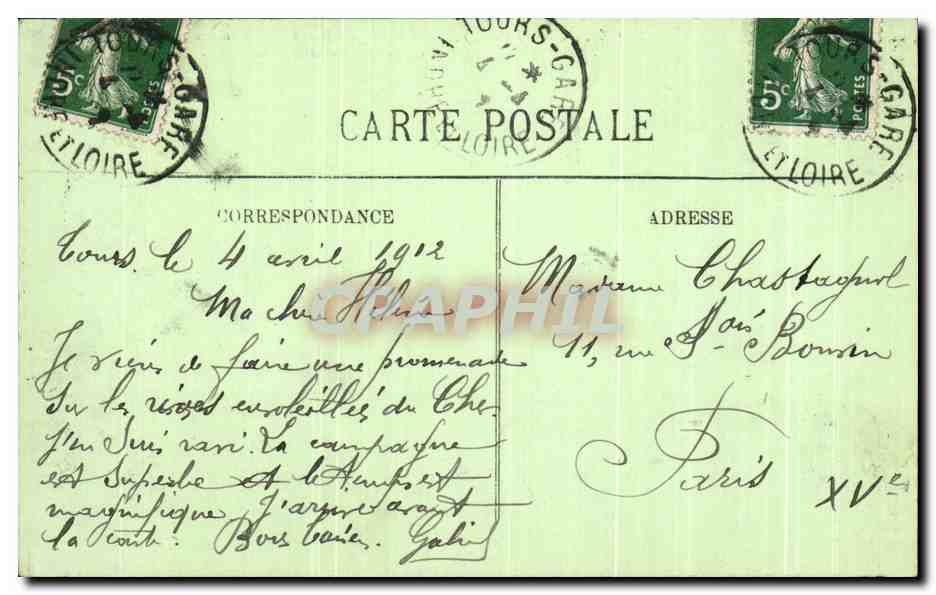 5c POSTES
TOURS-GARE
ET LOIRE
TOURS-GARE
LOIRE
5c POSTES
TOURS-GARE
ET LOIRE
CARTE POSTALE
CORRESPONDANCE
Tours le 4 avril 1912
Ma chère Hélène
Je viens de faire une promenade
sur les rives ensoleillées du Cher
J'en suis ravi. La campagne
est superbe et le temps est
magnifique J'arrive avant
la carte. Bons baisers.
ADRESSE
Madame Chastagnol
11, rue Fois Bonvin
Paris
XVe
CPAPHIL